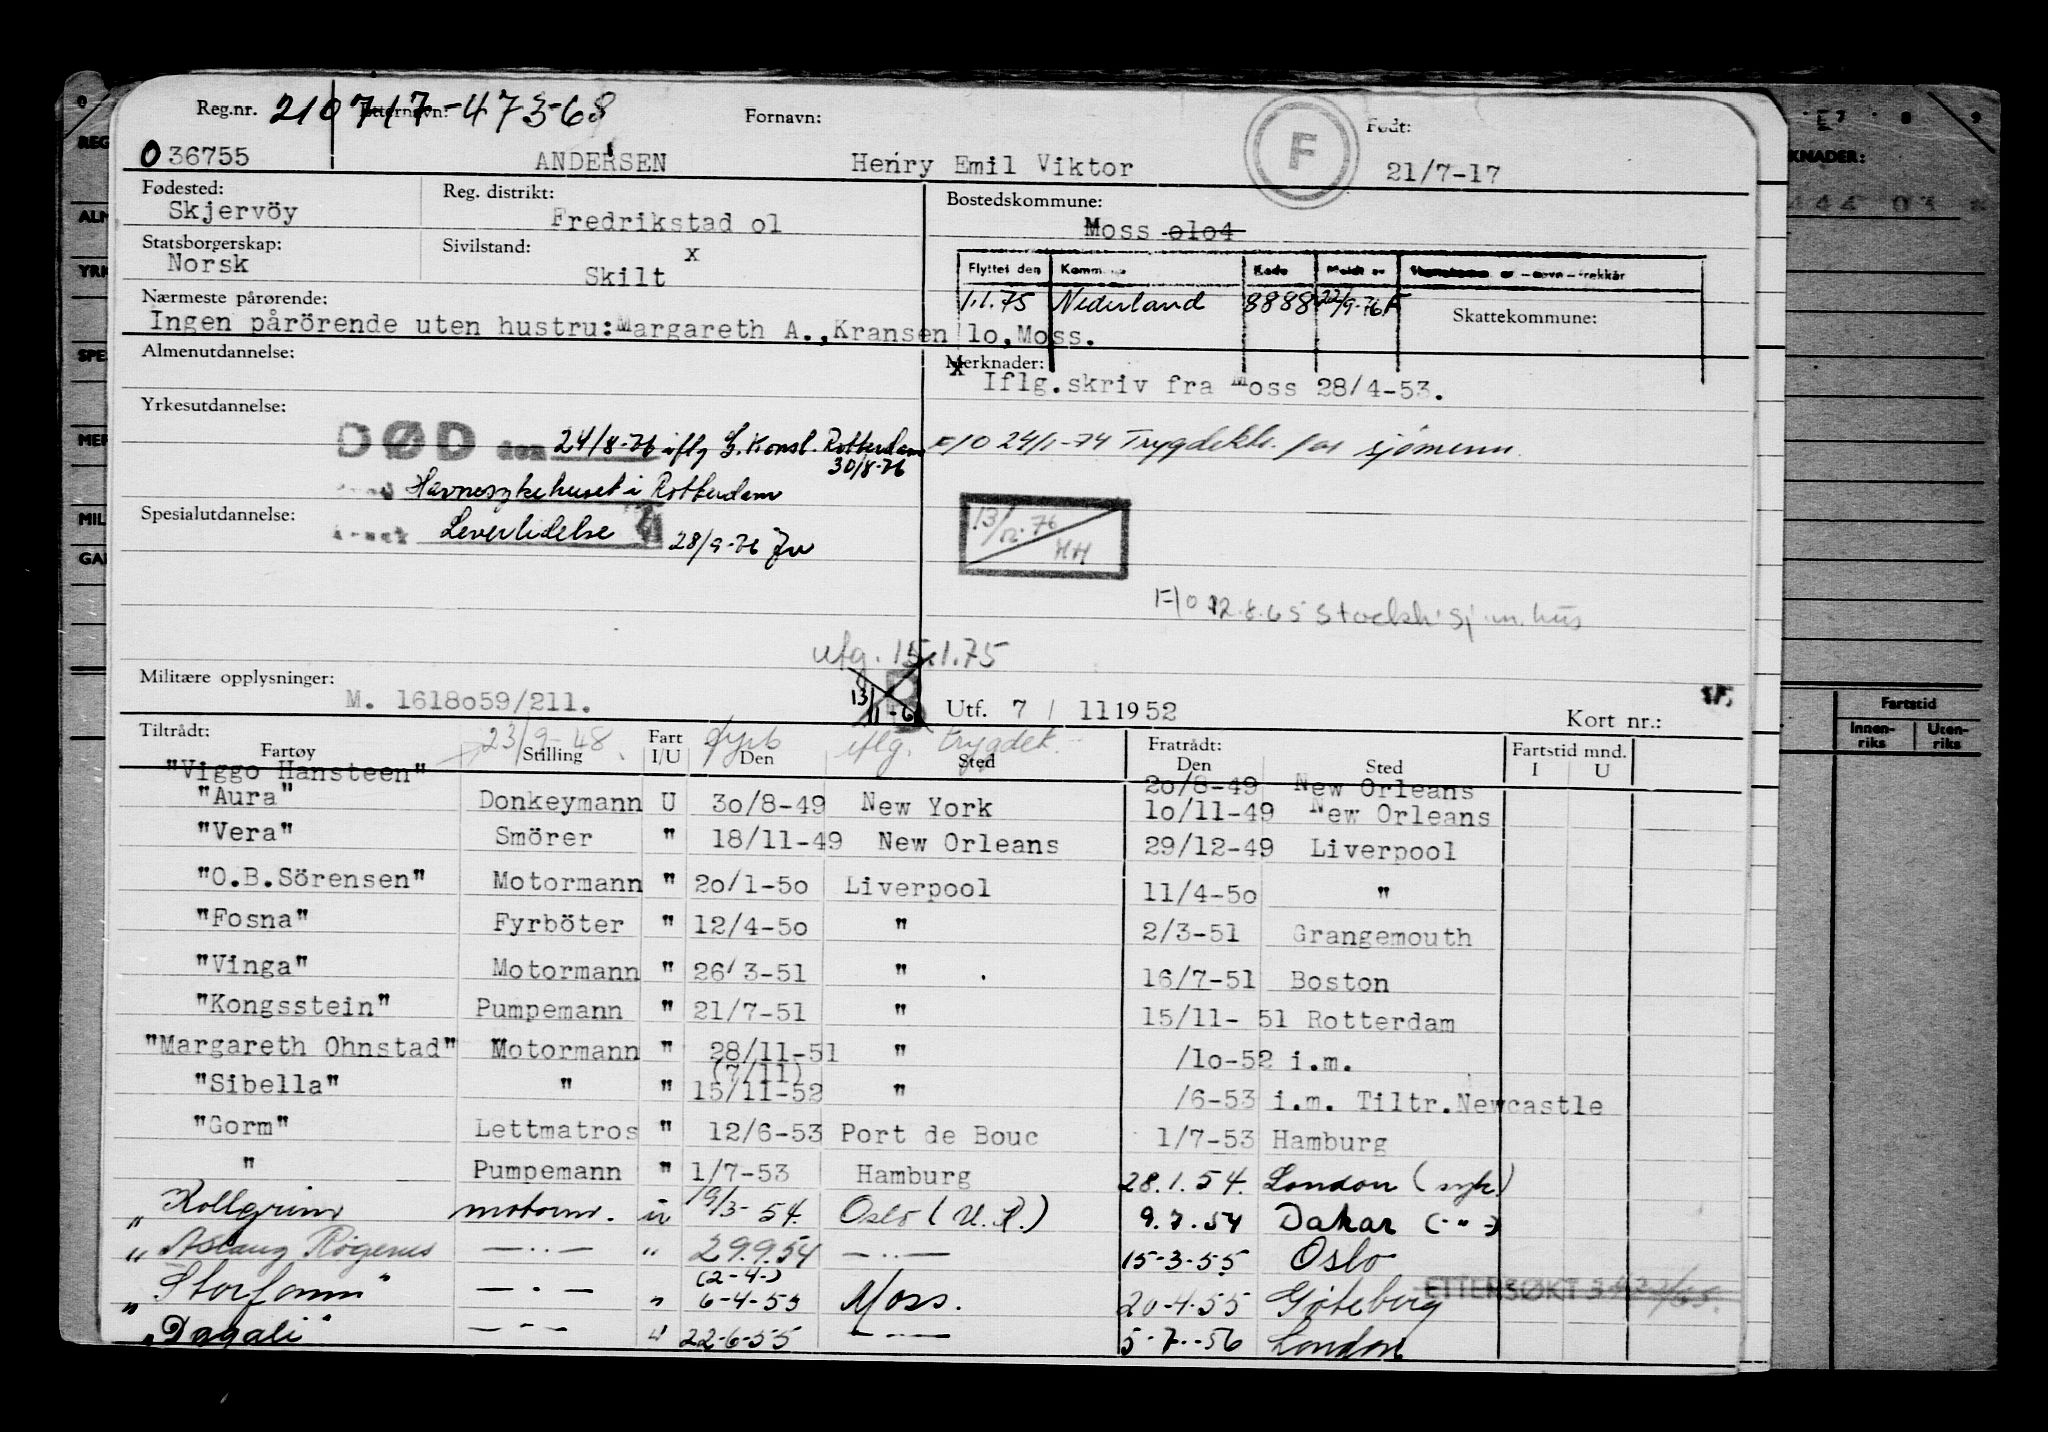 Reg.nr. 210717-473-68 Etternavn: Fornavn: Født:
036755 ANDERSEN Henry Emil Viktor F 21/7-17
Fødested: Reg. distrikt: Bostedskommune:
Skjervöy Fredrikstad ol Moss olo4
Statsborgerskap: Sivilstand: x
Norsk Skilt
Flyttet den Kommune Kode Meldt av
1.1.75 Nederland 8888 22/9-76 F
Nærmeste pårørende: Skattekommune:
Ingen pårörende uten hustru:Margareth A.,Kransen lo,Moss.
Almenutdannelse: Merknader:
x Iflg.skriv fra Moss 28/4-53.
Yrkesutdannelse:
DØD den 24/8-76 iflg G. Konsl. Rotterdam F/O 24/1-74 Trygdekt. for sjömenn
30/8-76
Havnesykehuset i Rotterdam
Spesialutdannelse: Leverlidelse 28/9-76
13/12-76
HH
F/O 12.8.65 Stockh. sj.m.hus
utg. 15.1.75
Militære opplysninger:
M. 1618o59/211. 13/11-6 Utf. 7 / 11 1952 Kort nr.:
Tiltrådt: 23/9-48 Fart fyrb iflg. trygdek. Fratrådt: Fartstid mnd.
Fartøy Stilling I/U Den Sted Den Sted I U
"Viggo Hansteen" 2o/8-49 New Orleans
"Aura" Donkeymann U 3o/8-49 New York lo/11-49 New Orleans
"Vera" Smörer " 18/11-49 New Orleans 29/12-49 Liverpool
"O.B.Sörensen" Motormann " 2o/1-5o Liverpool 11/4-5o "
"Fosna" Fyrböter " 12/4-5o " 2/3-51 Grangemouth
"Vinga" Motormann " 26/3-51 " 16/7-51 Boston
"Kongsstein" Pumpemann " 21/7-51 " 15/11- 51 Rotterdam
"Margareth Ohnstad" Motormann " 28/11-51 " /lo-52 i.m.
(7/11)
"Sibella" " " 15/11-52 " /6-53 i.m. Tiltr.Newcastle
"Gorm" Lettmatros " 12/6-53 Port de Bouc 1/7-53 Hamburg
" Pumpemann " 1/7-53 Hamburg 28.1.54. London (syk.)
" Kollgrim motorm. u 19/3-54. Oslo (U.R.) 9.7.54 Dakar (-"-)
" Aslaug Rogenæs -"- " 29.9.54 -"- 15-3-55 Oslo
(2-4-)
" Storfonn " -"- " 6-4-55 Moss. 20-4-55 Göteborg
ETTERSØKT
" Dagali " -"- " 22-6-55 -"- 5-7-56 London
KNADER:
Fartstid
Innen-riks Uten-riks